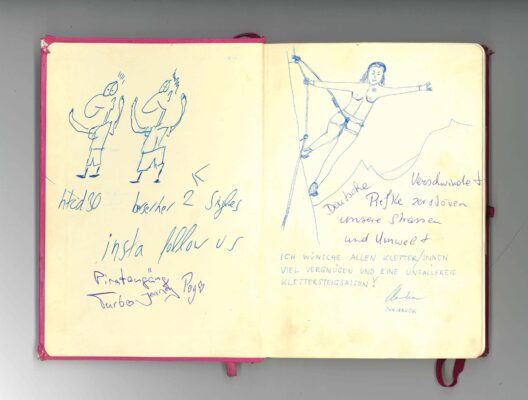 htcd30 berserker 2 Styles
insta follow us
Piratengäng
Turbo Pogo
Deutsche Verschwindet
Piefke zerstören
unsere Strassen
und Umwelt
ICH WÜNSCHE ALLEN KLETTER/INNEN
VIEL VERGNÜGEN UND EINE UNFALLFREIE
KLETTERSTEIGSAISON!
INNSBRUCK